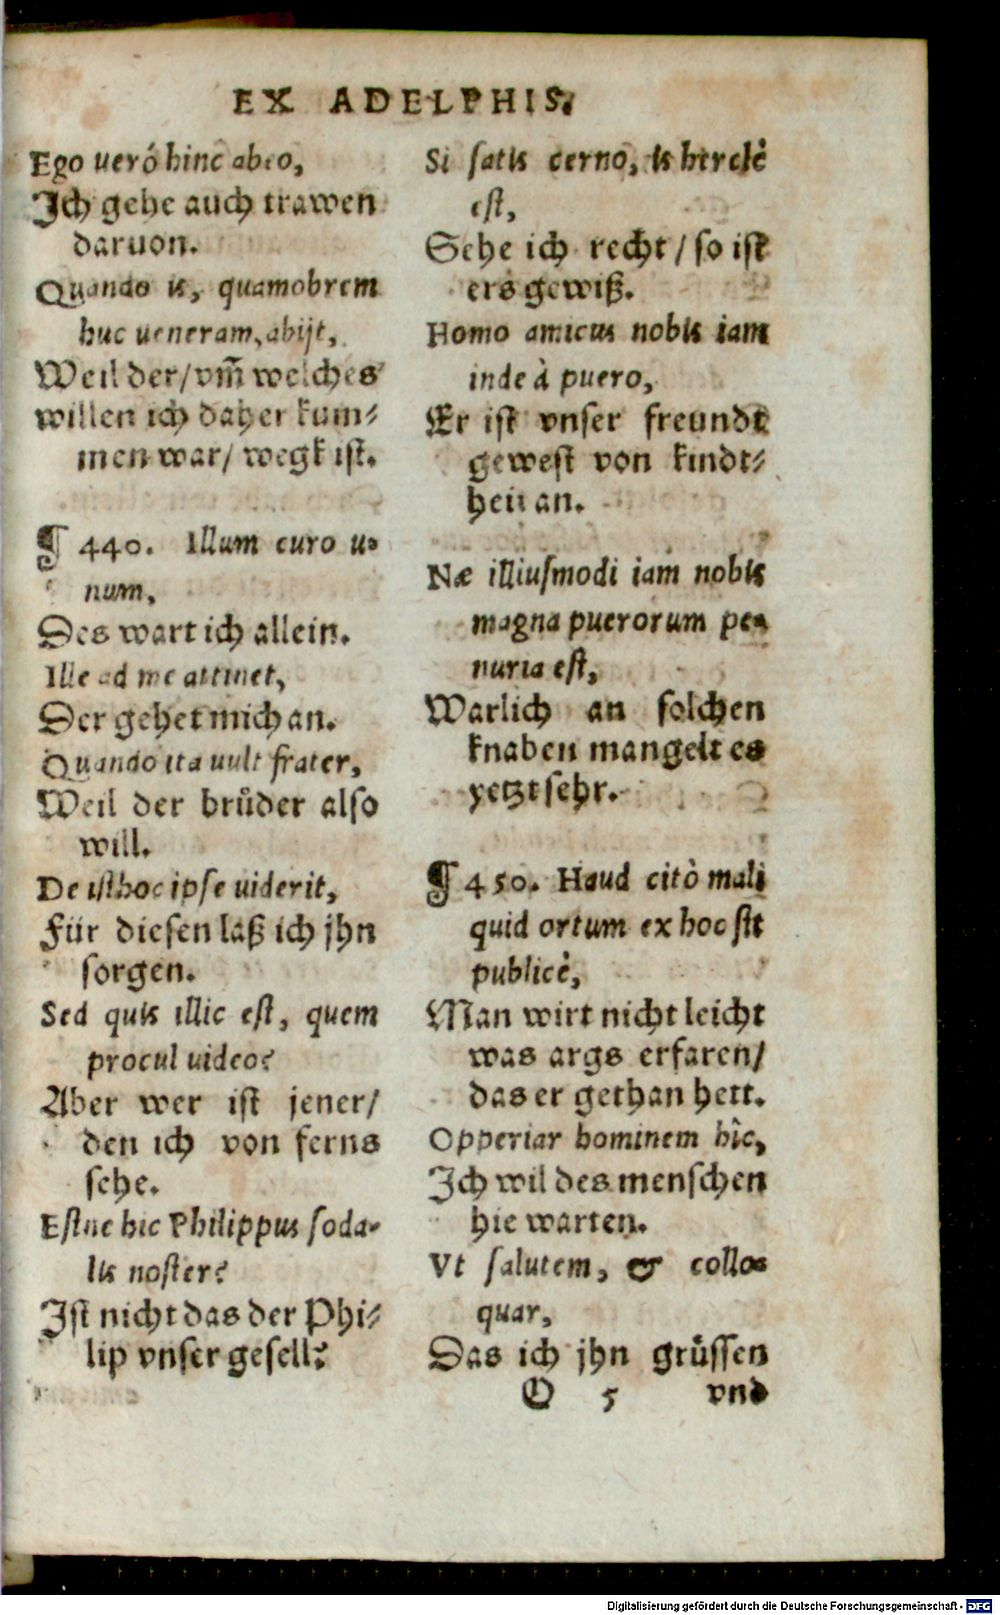 EX ADELPHIS.
Ego uerò hinc abeo,
Ich gehe auch trawen
daruon.
Quando is, quamobrem
huc ueneram, abijt,
Weil der/vm̃ welches
willen ich daher kum⸗
men war/ wegk ist.
¶ 440. Illum curo u⸗
num,
Des wart ich allein.
Ille ad me attinet,
Der gehet mich an.
Quando ita uult frater,
Weil der brůder also
will.
De isthoc ipse uiderit,
Für diesen laß ich jhn
sorgen.
Sed quis illic est, quem
procul uideo?
Aber wer ist jener/
den ich von ferns
sehe.
Estne hic Philippus soda⸗
lis noster?
Ist nicht das der Phi⸗
lip vnser gesell?
Si satis cerno, is herclè
est,
Sehe ich recht/ so ist
ers gewiß.
Homo amicus nobis iam
inde à puero,
Er ist vnser freundt
gewest von kindt⸗
heit an.
Næ illiusmodi iam nobis
magna puerorum pe⸗
nuria est,
Warlich an solchen
knaben mangelt es
yetzt sehr.
¶ 450. Haud citò mali
quid ortum ex hoc sit
publicè,
Man wirt nicht leicht
was args erfaren/
das er gethan hett.
Opperiar hominem hîc,
Ich wil des menschen
hie warten.
Vt salutem, & collo⸗
quar,
Das ich jhn grůssen
O 5 vnd
Digitalisierung gefördert durch die Deutsche Forschungsgemeinschaft - DFG